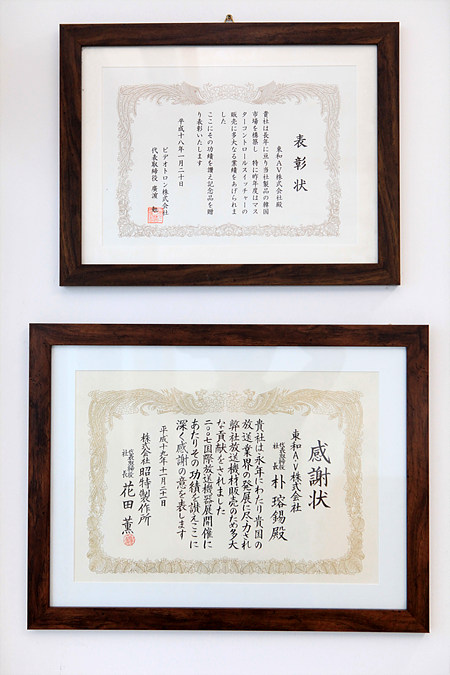 表彰状
東和AV株式会社殿
貴社は長年に亘り当社製品の韓国
市場を構築し 特に昨年度はマス
ターコントロールスイッチャーの
販売に多大なる業績をあげられま
した
ここにその功績を讃え記念品を贈
り表彰いたします
平成十八年一月二十日
ビデオトロン株式会社
代表取締役 廣濱
感謝状
東和A・V株式会社
代表取締役
社長 朴 瑢錫殿
貴社は永年にわたり貴国の
放送業界の発展に尽力され
弊社放送機材販売のため多大
な貢献をされました
二〇〇七国際放送機器展開催に
あたりその功績を讃えここに
深く感謝の意を表します
平成十九年十一月二十一日
株式会社 昭特製作所
代表取締役
社長 花田 薫